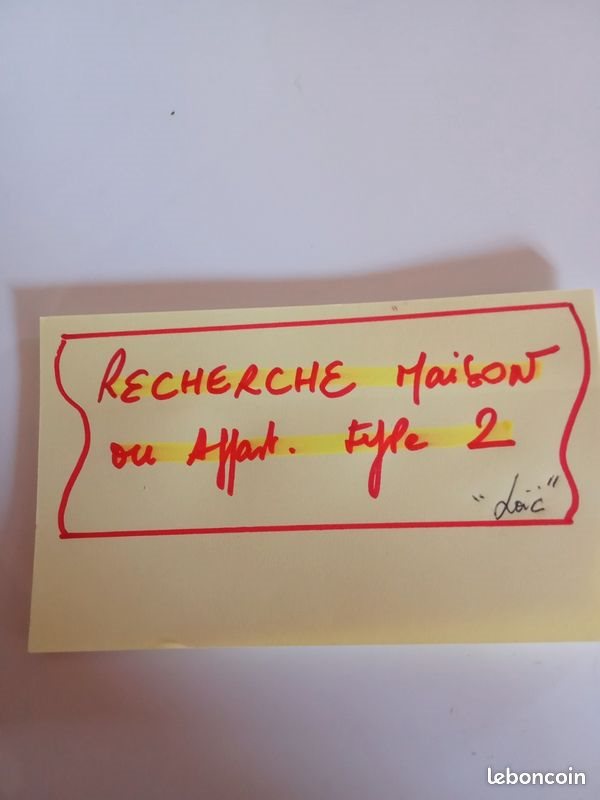 RECHERCHE MAISON
ou Appart. Type 2
"Loïc"
leboncoin